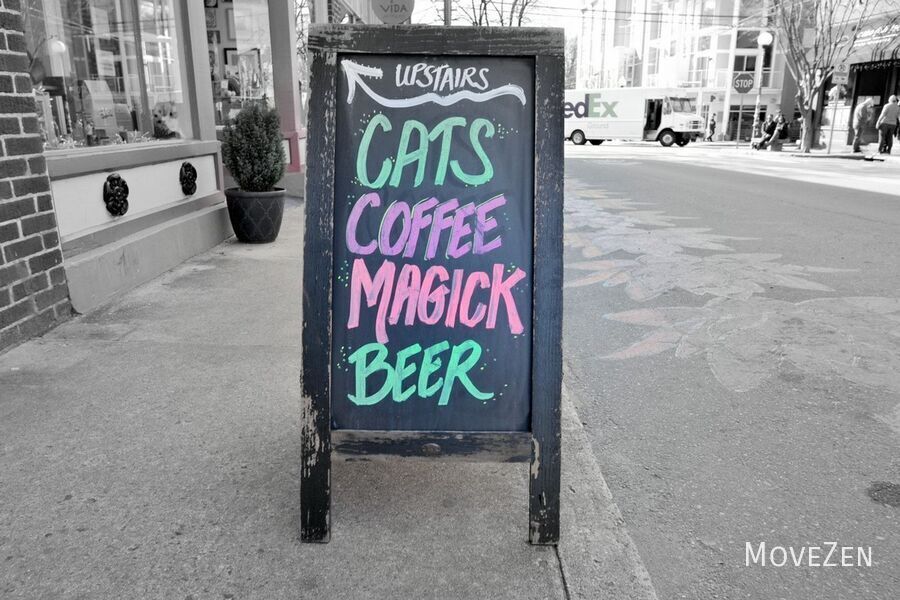 VIDA
UPSTAIRS
CATS
COFFEE
MAGICK
BEER
edEx
Ground
STOP
MOVEZEN